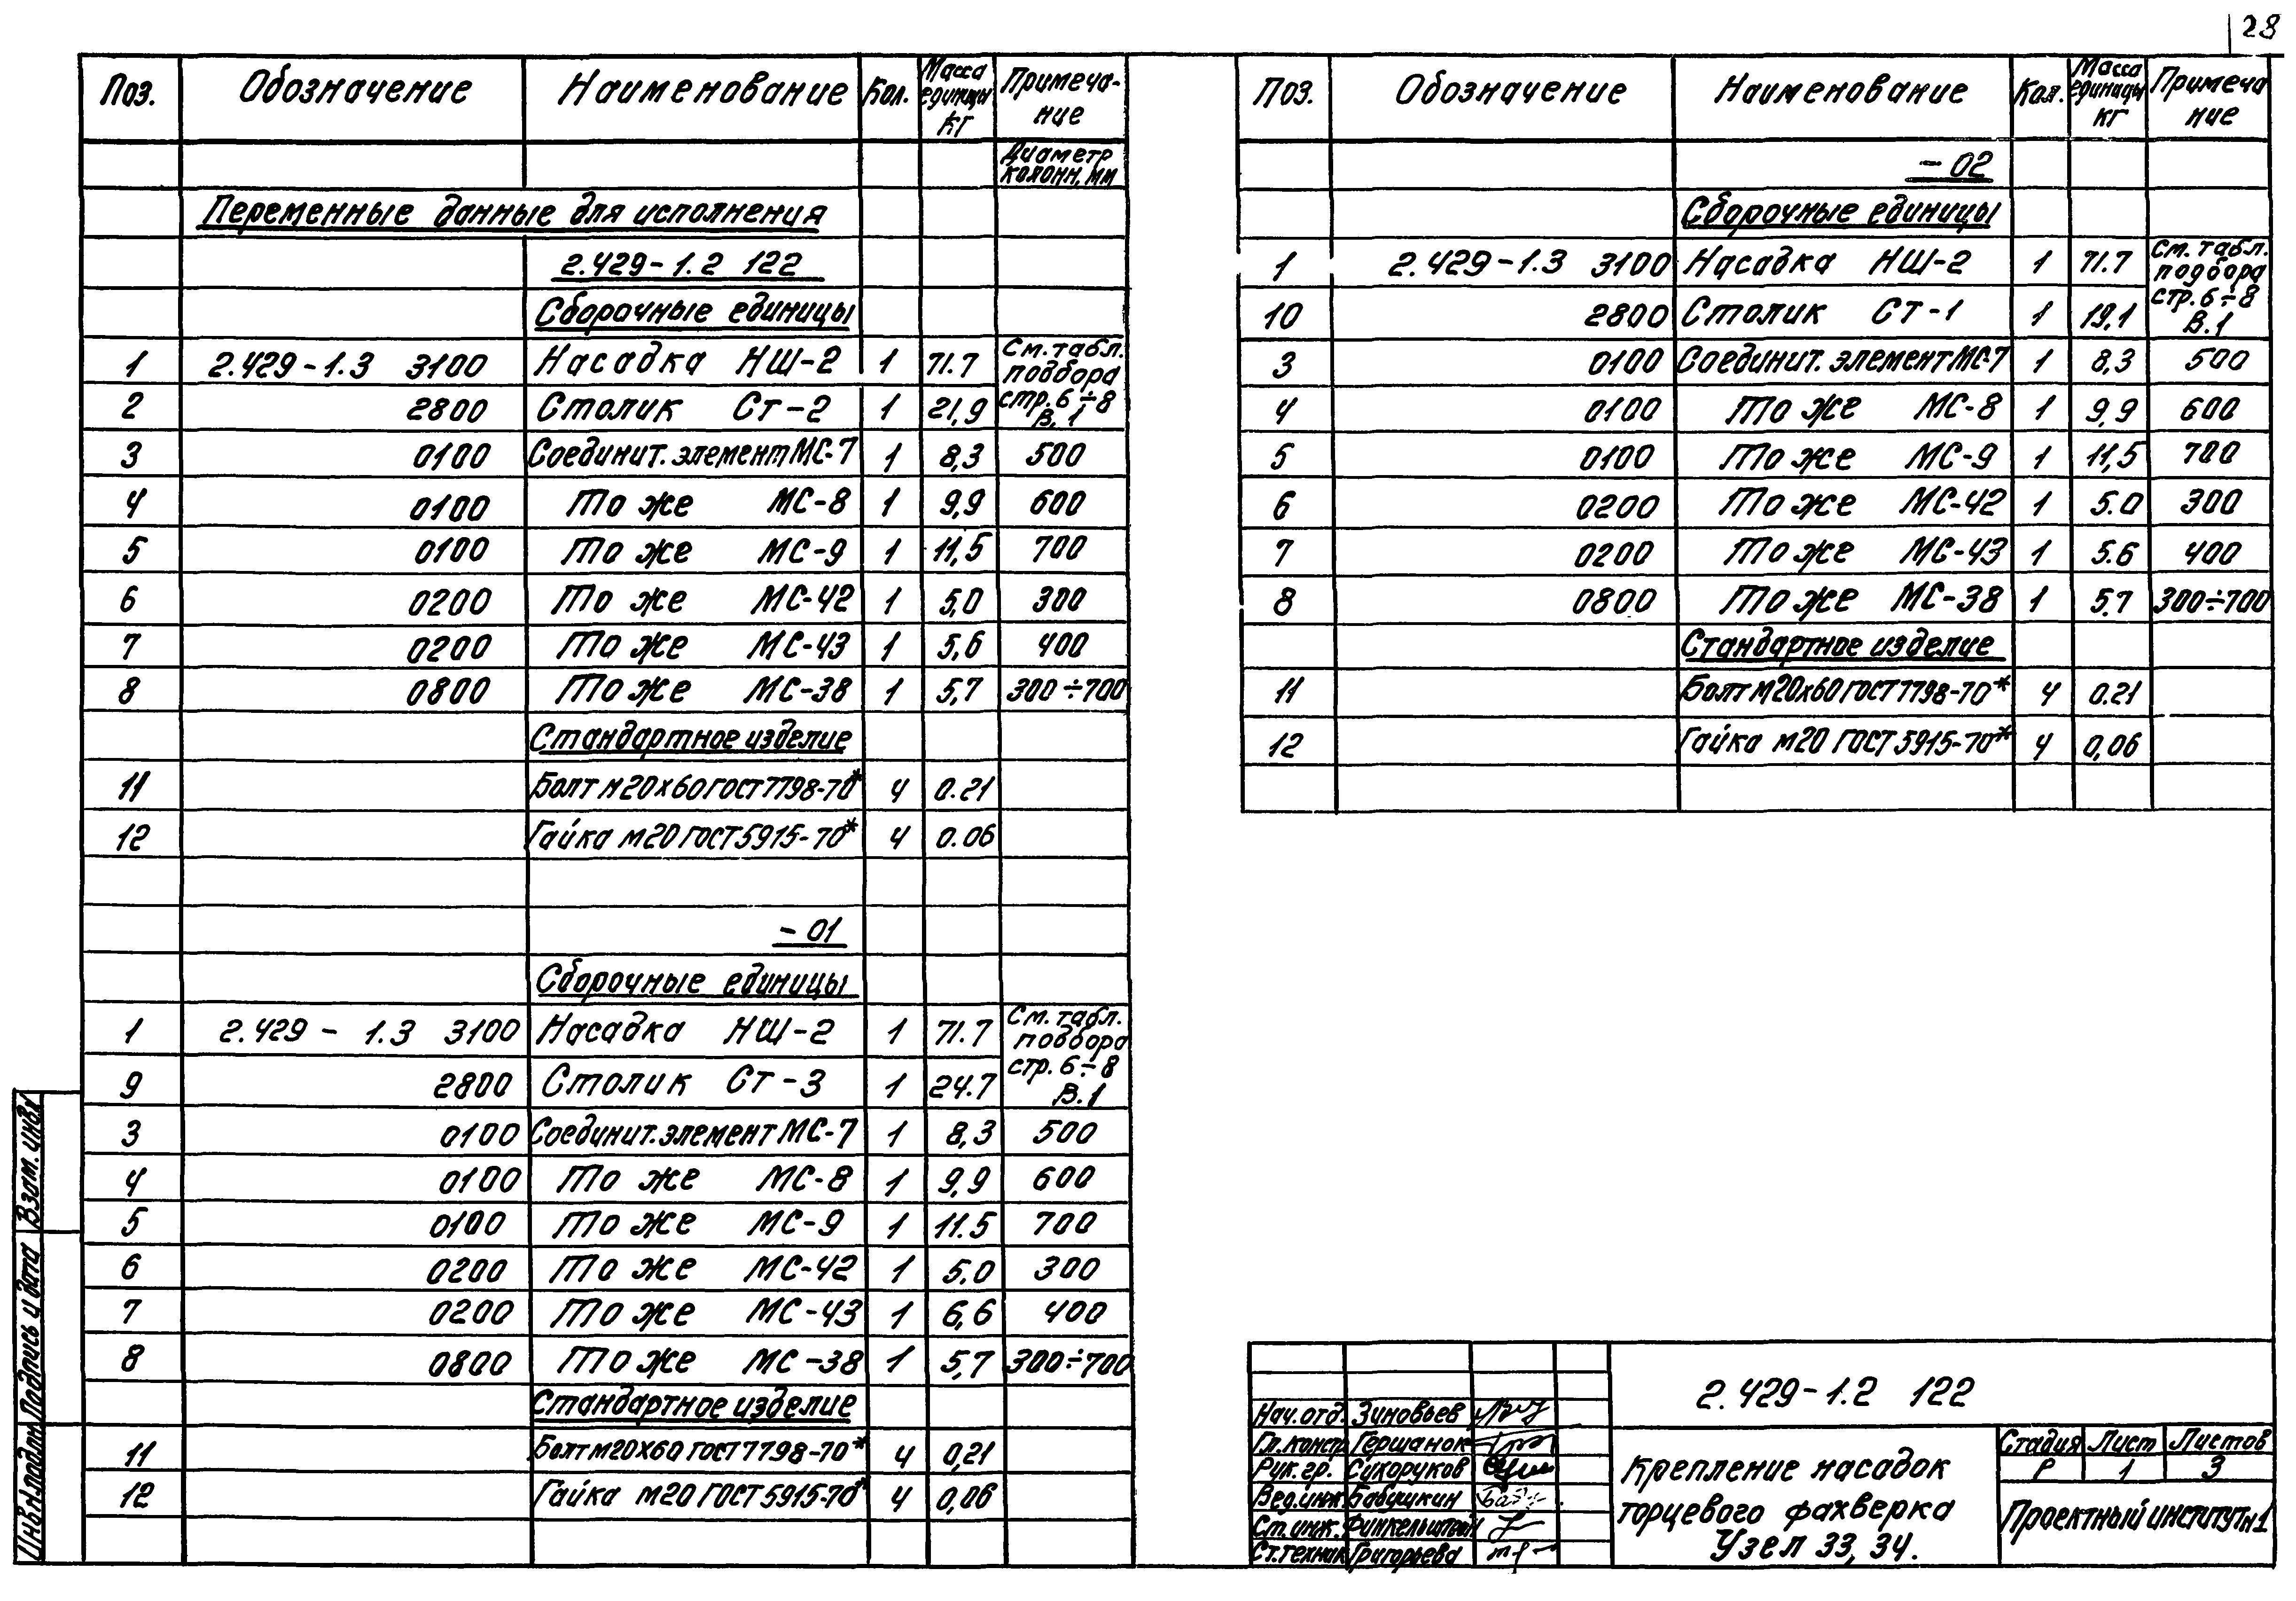 28
Поз. Обозначение Наименование Кол. Масса единицы кг Примеча-ние
Диаметр колонн, мм
Переменные данные для исполнения
2.429-1.2 122
Сборочные единицы
1 2.429-1.3 3100 Насадка НШ-2 1 71.7 См. табл. подбора
2 2800 Столик Ст-2 1 21,9 стр. 6÷8 В.1
3 0100 Соединит. элемент МС-7 1 8,3 500
4 0100 То же МС-8 1 9,9 600
5 0100 То же МС-9 1 11,5 700
6 0200 То же МС-42 1 5,0 300
7 0200 То же МС-43 1 5,6 400
8 0800 То же МС-38 1 5,7 300÷700
Стандартное изделие
11 Болт м20х60 ГОСТ 7798-70* 4 0.21
12 Гайка м20 ГОСТ 5915-70* 4 0.06
-01
Сборочные единицы
1 2.429-1.3 3100 Насадка НШ-2 1 71.7 См. табл. подбора
9 2800 Столик Ст-3 1 24.7 стр. 6÷8 В.1
3 0100 Соединит. элемент МС-7 1 8,3 500
4 0100 То же МС-8 1 9,9 600
5 0100 То же МС-9 1 11.5 700
6 0200 То же МС-42 1 5,0 300
7 0200 То же МС-43 1 6,6 400
8 0800 То же МС-38 1 5,7 300÷700
Стандартное изделие
11 Болт м20х60 ГОСТ 7798-70* 4 0,21
12 Гайка м20 ГОСТ 5915-70* 4 0,06
Поз. Обозначение Наименование Кол. Масса единицы кг Примеча ние
-02
Сборочные единицы
1 2.429-1.3 3100 Насадка НШ-2 1 71.7 См. табл. подбора
10 2800 Столик Ст-1 1 19,1 стр. 6÷8 В.1
3 0100 Соединит. элемент МС-7 1 8,3 500
4 0100 То же МС-8 1 9,9 600
5 0100 То же МС-9 1 11,5 700
6 0200 То же МС-42 1 5.0 300
7 0200 То же МС-43 1 5.6 400
8 0800 То же МС-38 1 5.7 300÷700
Стандартное изделие
11 Болт м20х60 ГОСТ 7798-70* 4 0.21
12 Гайка м20 ГОСТ 5915-70* 4 0,06
2.429-1.2 122
Нач. отд. Зиновьев
Гл. констр Гершанок
Рук. гр. Сукоруков
Вед. инж Бабушкин
Ст. инж. Финкельштейн
Ст. техник Григорьева
Крепление насадок
торцевого фахверка
Узел 33, 34.
Стадия Лист Листов
Р 1 3
Проектный институт №1
Взам. инв.№
Подпись и дата
Инв.№ подл.